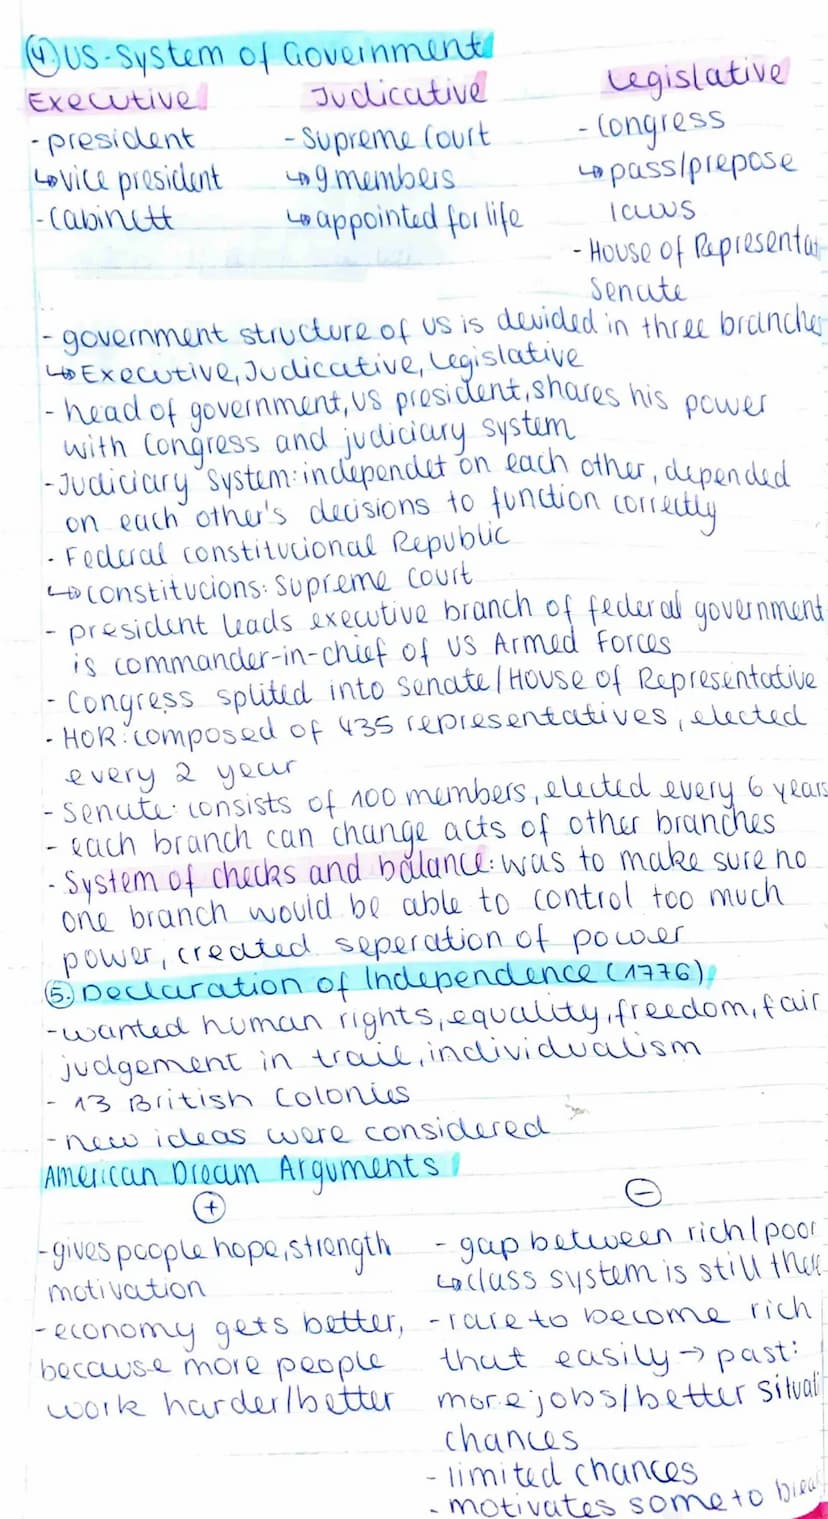 ④ US-System of Government
Executive Judicative Legislative
- president - Supreme Court - Congress
↳ vice president ↳ 9 members ↳ pass/prepose
- Cabinett ↳ appointed for life laws
- House of Representa
Senate
- government structure of US is devided in three branches
↳ Executive, Judicative, Legislative
- head of government, US president, shares his power
with Congress and judiciary system
- Judiciary System: independet on each other, depended
on each other's decisions to function correctly
- Federal constitucional Republic
↳ constitucions: Supreme Court
- president leads executive branch of federal government
is commander-in-chief of US Armed Forces
- Congress splited into Senate/House of Representative
- HOR: composed of 435 representatives, elected
every 2 year
- Senate: consists of 100 members, elected every 6 years
- each branch can change acts of other branches
- System of checks and balance: was to make sure no
one branch would be able to control too much
power, created seperation of power
⑤ Declaration of Independence (1776)
- wanted human rights, equality, freedom, fair
judgement in trail, individualism
- 13 British Colonies
- new ideas were considered
American Dream Arguments
+ -
- gives people hope, strength - gap between rich/poor
motivation ↳ class system is still there
- economy gets better, - rare to become rich
because more people that easily → past:
work harder/better more jobs/better situati
chances
- limited chances
- motivates some to brea